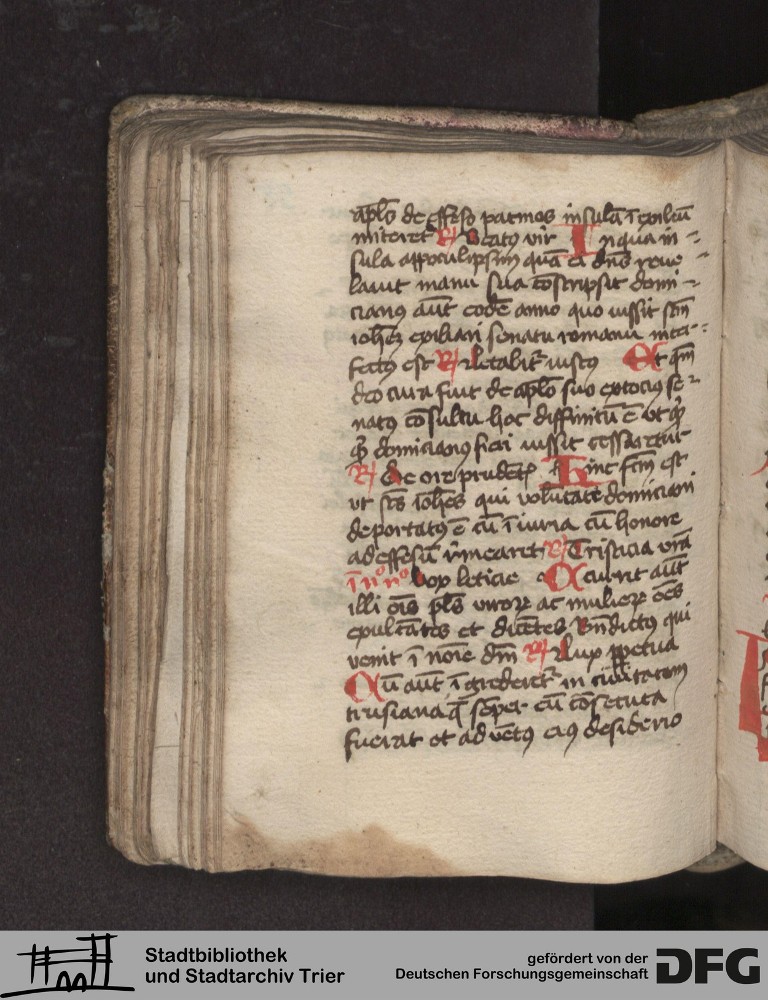 apl̄s de effeso patmos insulā ī exiliū
mitteret R̷ Beatus vir In qua in-
sula appocalipsim quā ei dn̄s reve-
lavit manu sua cōscripsit domi-
cianus aūt eodē anno quo iussit scm̄
ioh̄ez exiliari senatu romanū inter-
fectus est R̷ Letabitᷣ iustus Et qm̄
deo cura fuit de apl̄o suo ex tocius se-
natus cōsultu hoc diffinitū ē ut qͥ
qͥ domicianus fieri iussit cessaretur
R̷ De ore prudētꝭ Hinc scm̄ est
ut scs̄ ioh̄es qui volūtate domiciani
deportatus ē cū īiuria cū honore
ad effesū remearet R̷ Tristicia vr̄a
ī iiᵒ nᵒ Vox leticie Occurrit aūt
illi ois̄ pl̄s virorꝫ ac mulierꝫ oēs
exultātes et dicētes Bn̄dictus qui
venit ī noīe dn̄i R̷ Lux ꝑpetua
Cū aūt īgrederetᷣ in civitatem
trusiana q̄ semper eū cōsecuta
fuerat et adventus eius desiderio
Stadtbibliothek
und Stadtarchiv Trier
gefördert von der
Deutschen Forschungsgemeinschaft
DFG